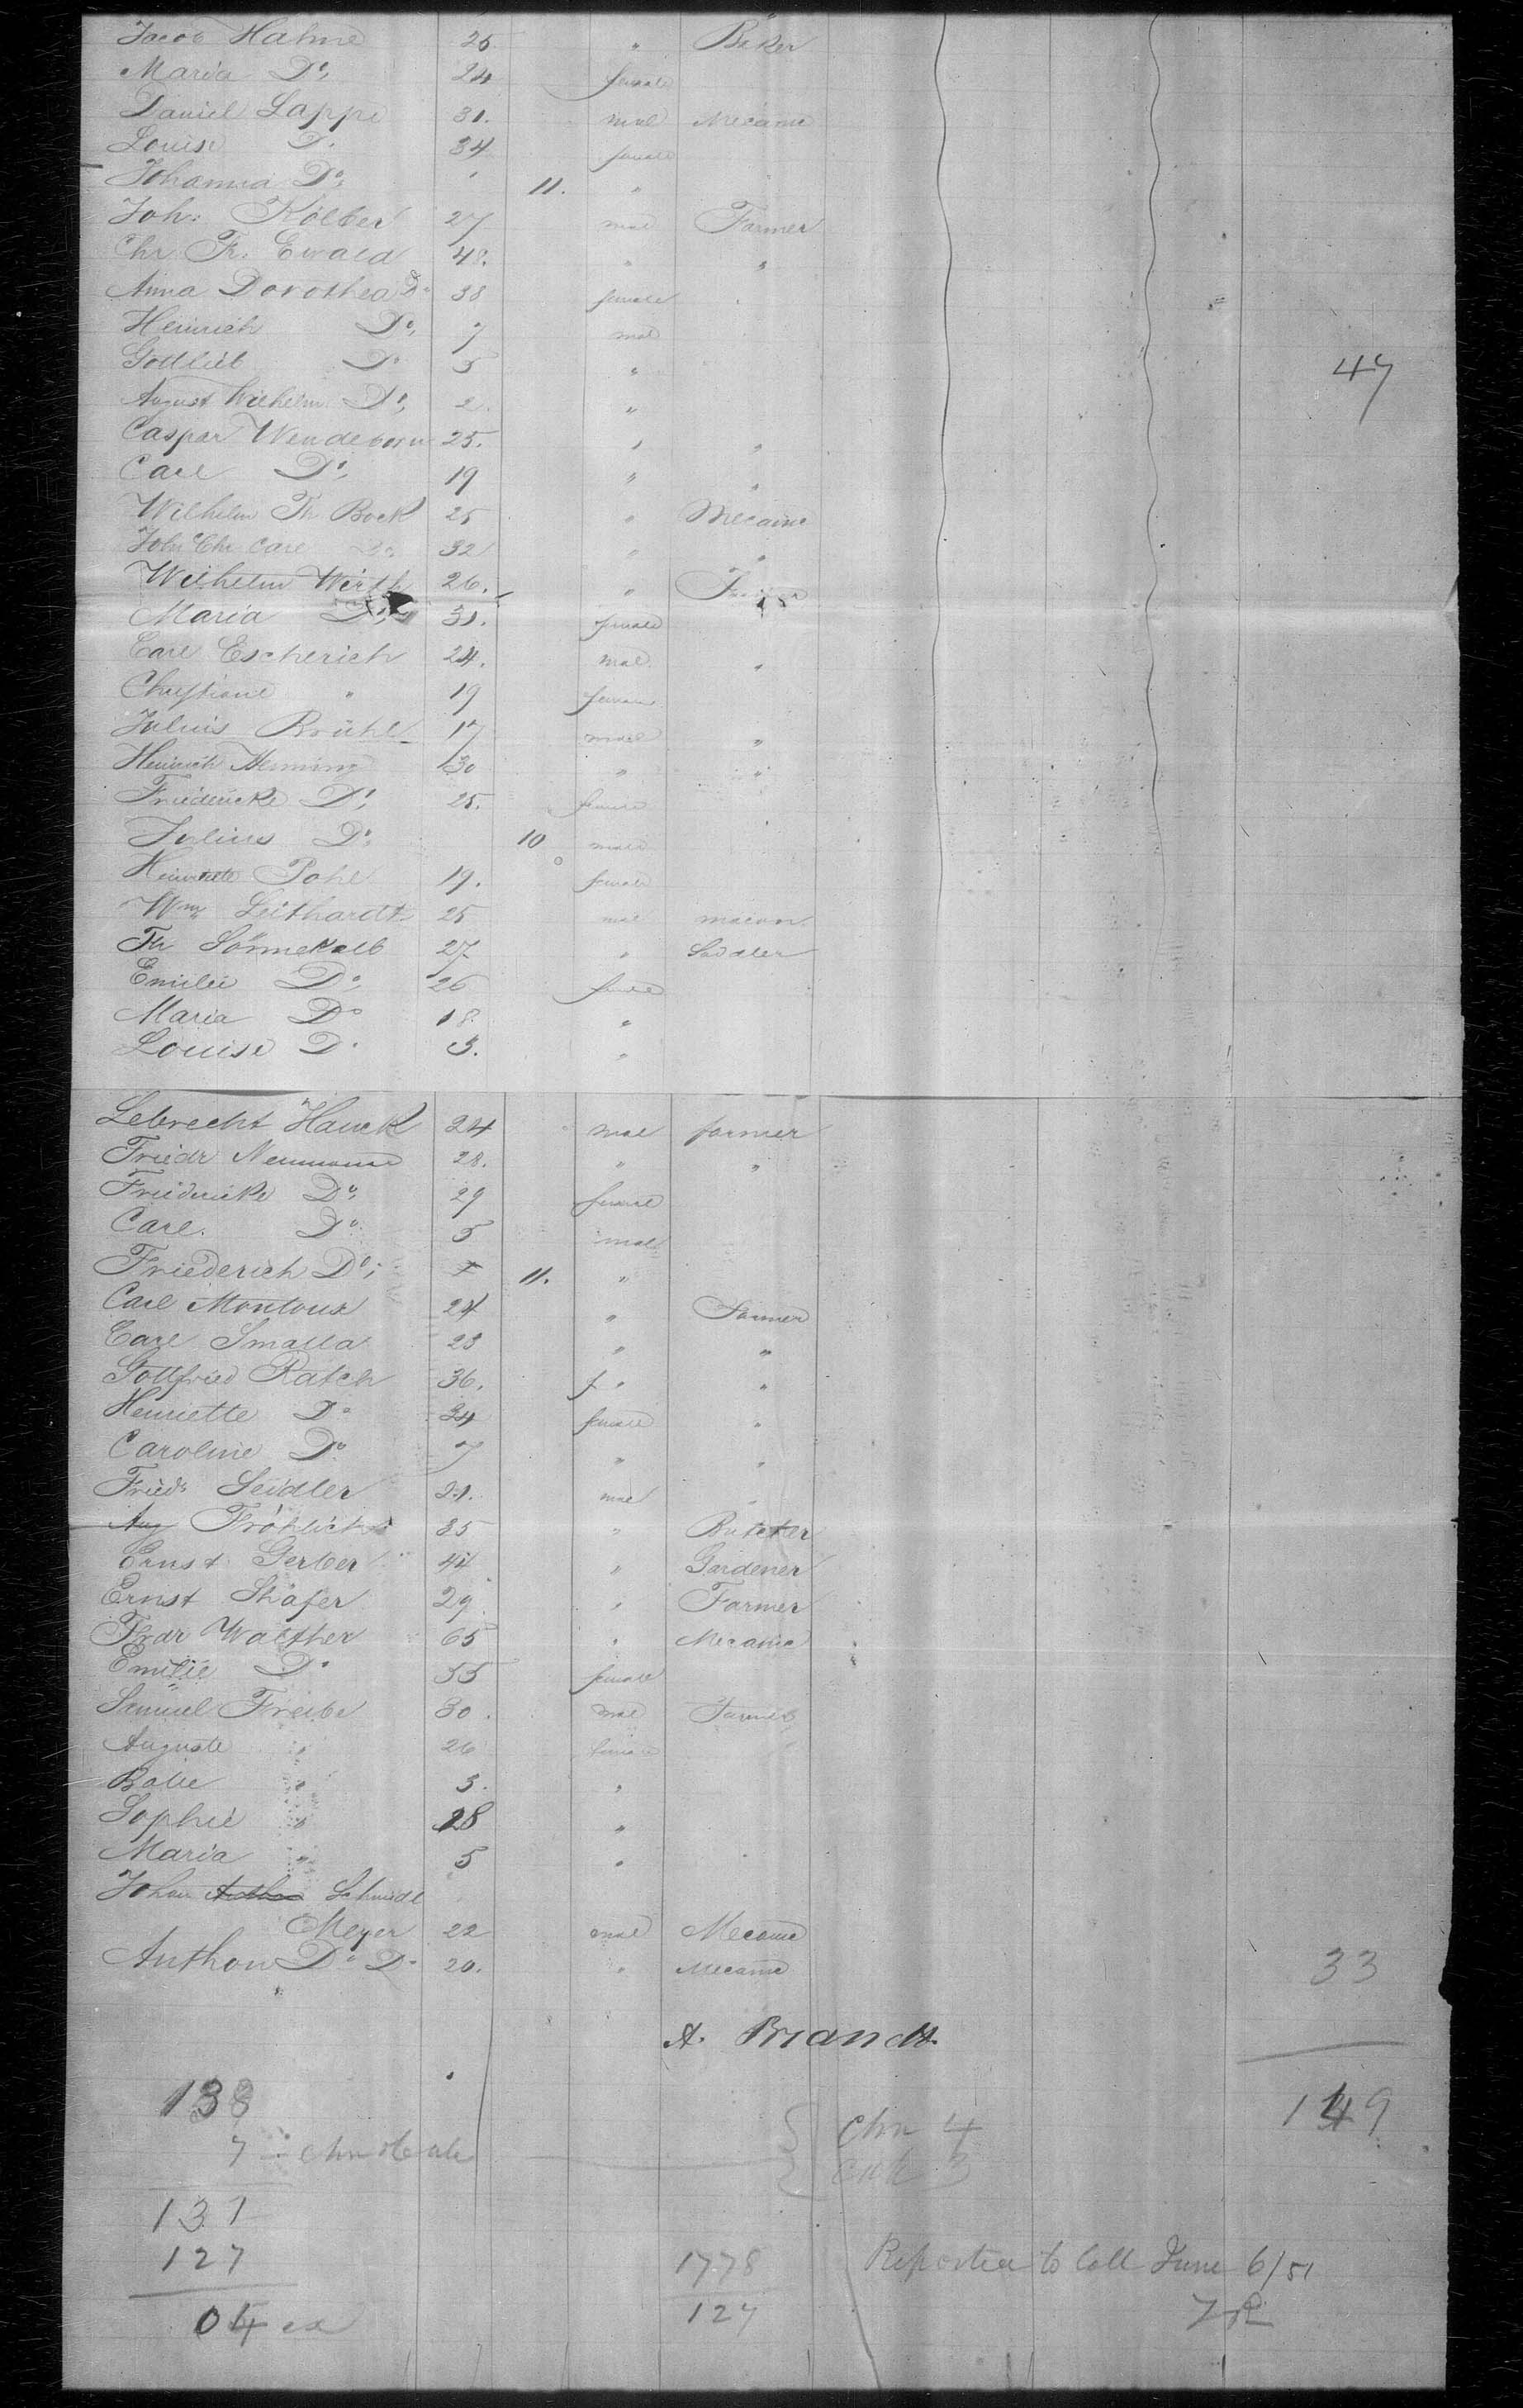 Jacob Hahne 25. " Baker
Maria Do, 24 female
Daniel Lappe 31. mal Mecanic
Louise D. 34 female
Johanna Do, ' 11. "
Joh. Kölber 27 mal Farmer
Chr Fr. Ewald 48. " "
Anna Dorothea Do 38 female
Heinrich Do, 7 mal
Gottlieb Do 5 "
47
August Wilhelm Do, 2. "
Caspar Wendeborn 25. " "
Carl Do, 19 " "
Wilhelm Th Bock 25 " Mecanic
Joh Chr Carl Do 32 " "
Wilhelm Wirth 26. "
Maria Do, 31. female
Carl Escherich 24. mal "
Christiane " 19 female
Julius Brühl 17 male "
Heinrich Henning 30 " "
Friedericke Do, 25. female
Julius Do 10 male
Henriette Pohl 19. female
Wm Leithardt 25 mal macon
Fr Sönnekalb 27 " Sadler
Emilie Do, 26 female
Maria Do 18. "
Louise D. 3. "
Lebrecht Hauck 24 mal farmer
Friedr Neumann 28. " "
Friedericke Do, 29 female
Carl. Do 5 male
Friederich Do, 11. "
Carl Montoux 24 " Farmer
Carl Smalla 23 " "
Gottfried Ratch 36. f " "
Henriette Do 34 female "
Caroline Do 7 " "
Friedr Seidler 21. mal "
Aug Fröhlich 35 " Butcher
Ernst Gerber 44 " Gardener
Ernst Shäfer 29 " Farmer
Frdr Walther 65 " Mecanic
Emilie Do 55 female
Samuel Freibe 30. mal Farmer
Auguste " 26 female
" 3. "
Sophie " 28 "
Maria " 5 "
Johan Schmidt
Meyer 22 mal Mecanic
Anthon Do Do 20. " Mecanic
33
A. Brandt.
138 149
7 Chn 4
3
131
127 1778 Reported to Coll June 6/51
04 127